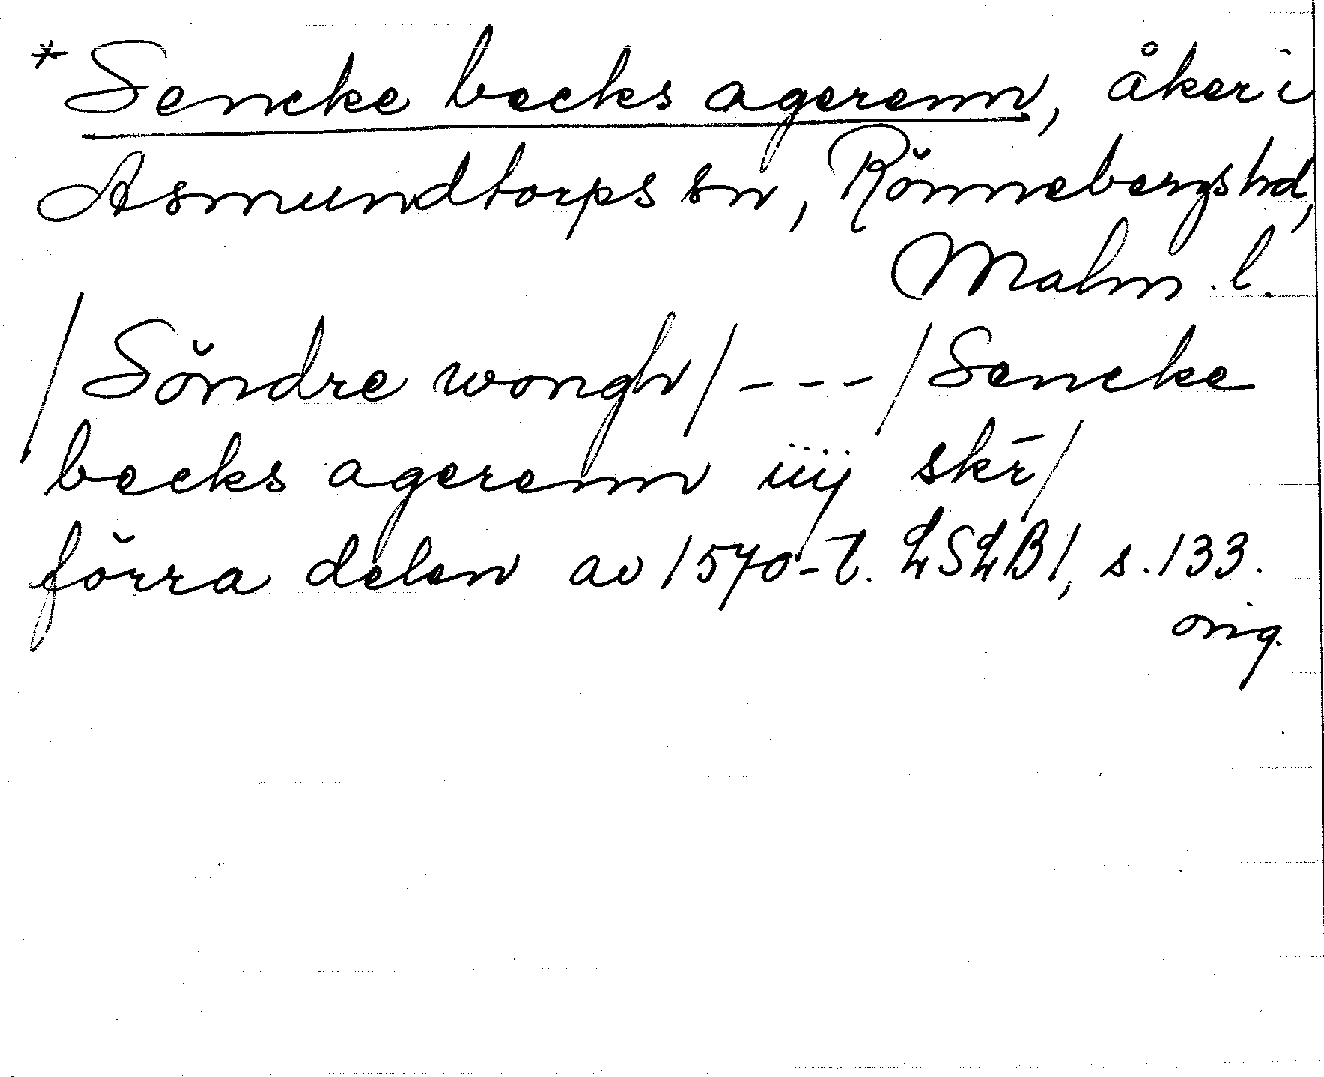 *Sencke becks agerenn, åker i
Asmundtorps sn, Rönnebergs hd,
Malm. l.
/Söndre wongh/ - - - /Sencke
becks agerenn iiij skr̄/
förra delen av 1570-t. LSLB1, s. 133.
orig.